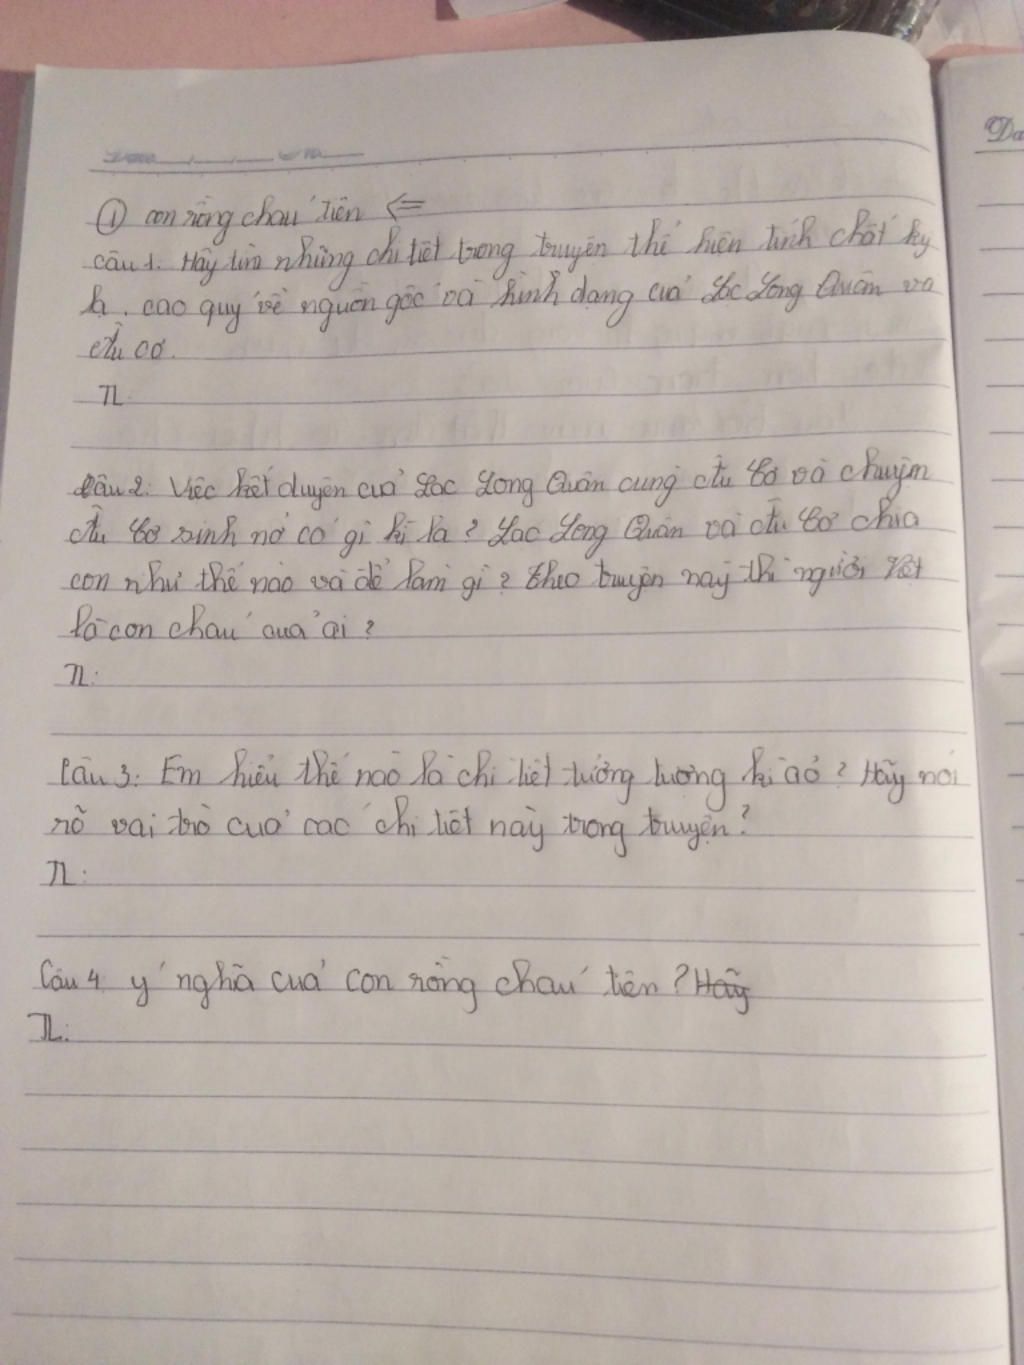 ① con rồng cháu tiên ⇐
câu 1. Hãy tìm những chi tiết trong truyện thể hiện tính chất kỳ
lạ, cao quý về nguồn gốc và hình dạng của Lạc Long Quân và
Âu cơ.
TL
Câu 2: Việc kết duyên của Lạc Long Quân cùng Âu Cơ và chuyện
Âu Cơ sinh nở có gì kì lạ? Lạc Long Quân và Âu Cơ chia
con như thế nào và để làm gì? theo truyện này thì người Việt
là con cháu của ai?
TL:
Câu 3: Em hiểu thế nào là chi tiết tưởng tượng kì ảo? Hãy nói
rõ vai trò của các chi tiết này trong truyện?
TL:
Câu 4 ý nghĩa của con rồng cháu tiên? Hãy
TL:
Da